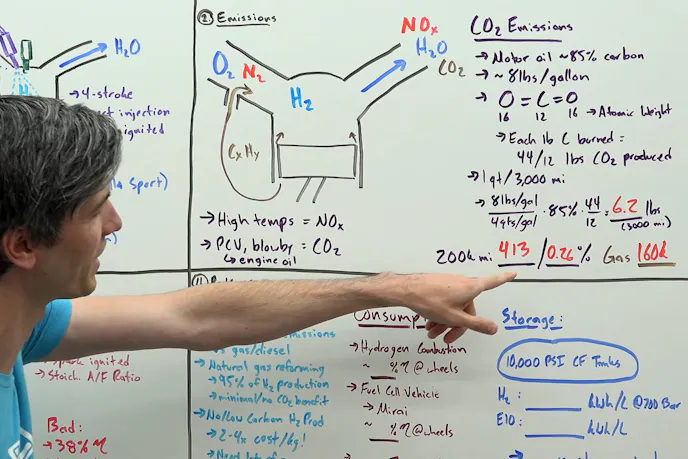 H₂O
→ 4-stroke
injection
ignited
Sport)
② Emissions
O₂ N₂
H₂
NOx
H₂O
CO₂
CxHy
→ High temps = NOx
→ PCV, blowby = CO₂
↳ engine oil
CO₂ Emissions
→ Motor oil ~85% carbon
→ ~8lbs/gallon
→ O=C=O
16 12 16 → Atomic Weight
→ Each lb C burned =
44/12 lbs CO₂ produced
→ 1qt/3,000 mi
→ 8lbs/gal / 4qts/gal · 85% · 44/12 = 6.2 lbs
(3000 mi)
200k mi 413 / 0.26% Gas 160k
spark ignited
→ Stoich. A/F Ratio
Bad:
→ 38% η
emissions
vs gas/diesel
→ Natural gas reforming
→ 95% of H₂ production
→ minimal/no CO₂ benefit
→ No/low Carbon H₂ Prod
→ 2-4x cost/kg!
→ Need lots of
Consump
→ Hydrogen Combustion
~ __ %η @ wheels
→ Fuel Cell Vehicle
→ Mirai
~ __ %η @ wheels
Storage:
10,000 PSI CF Tanks
H₂: ______ kWh/L @700 Bar
E10: ______ kWh/L